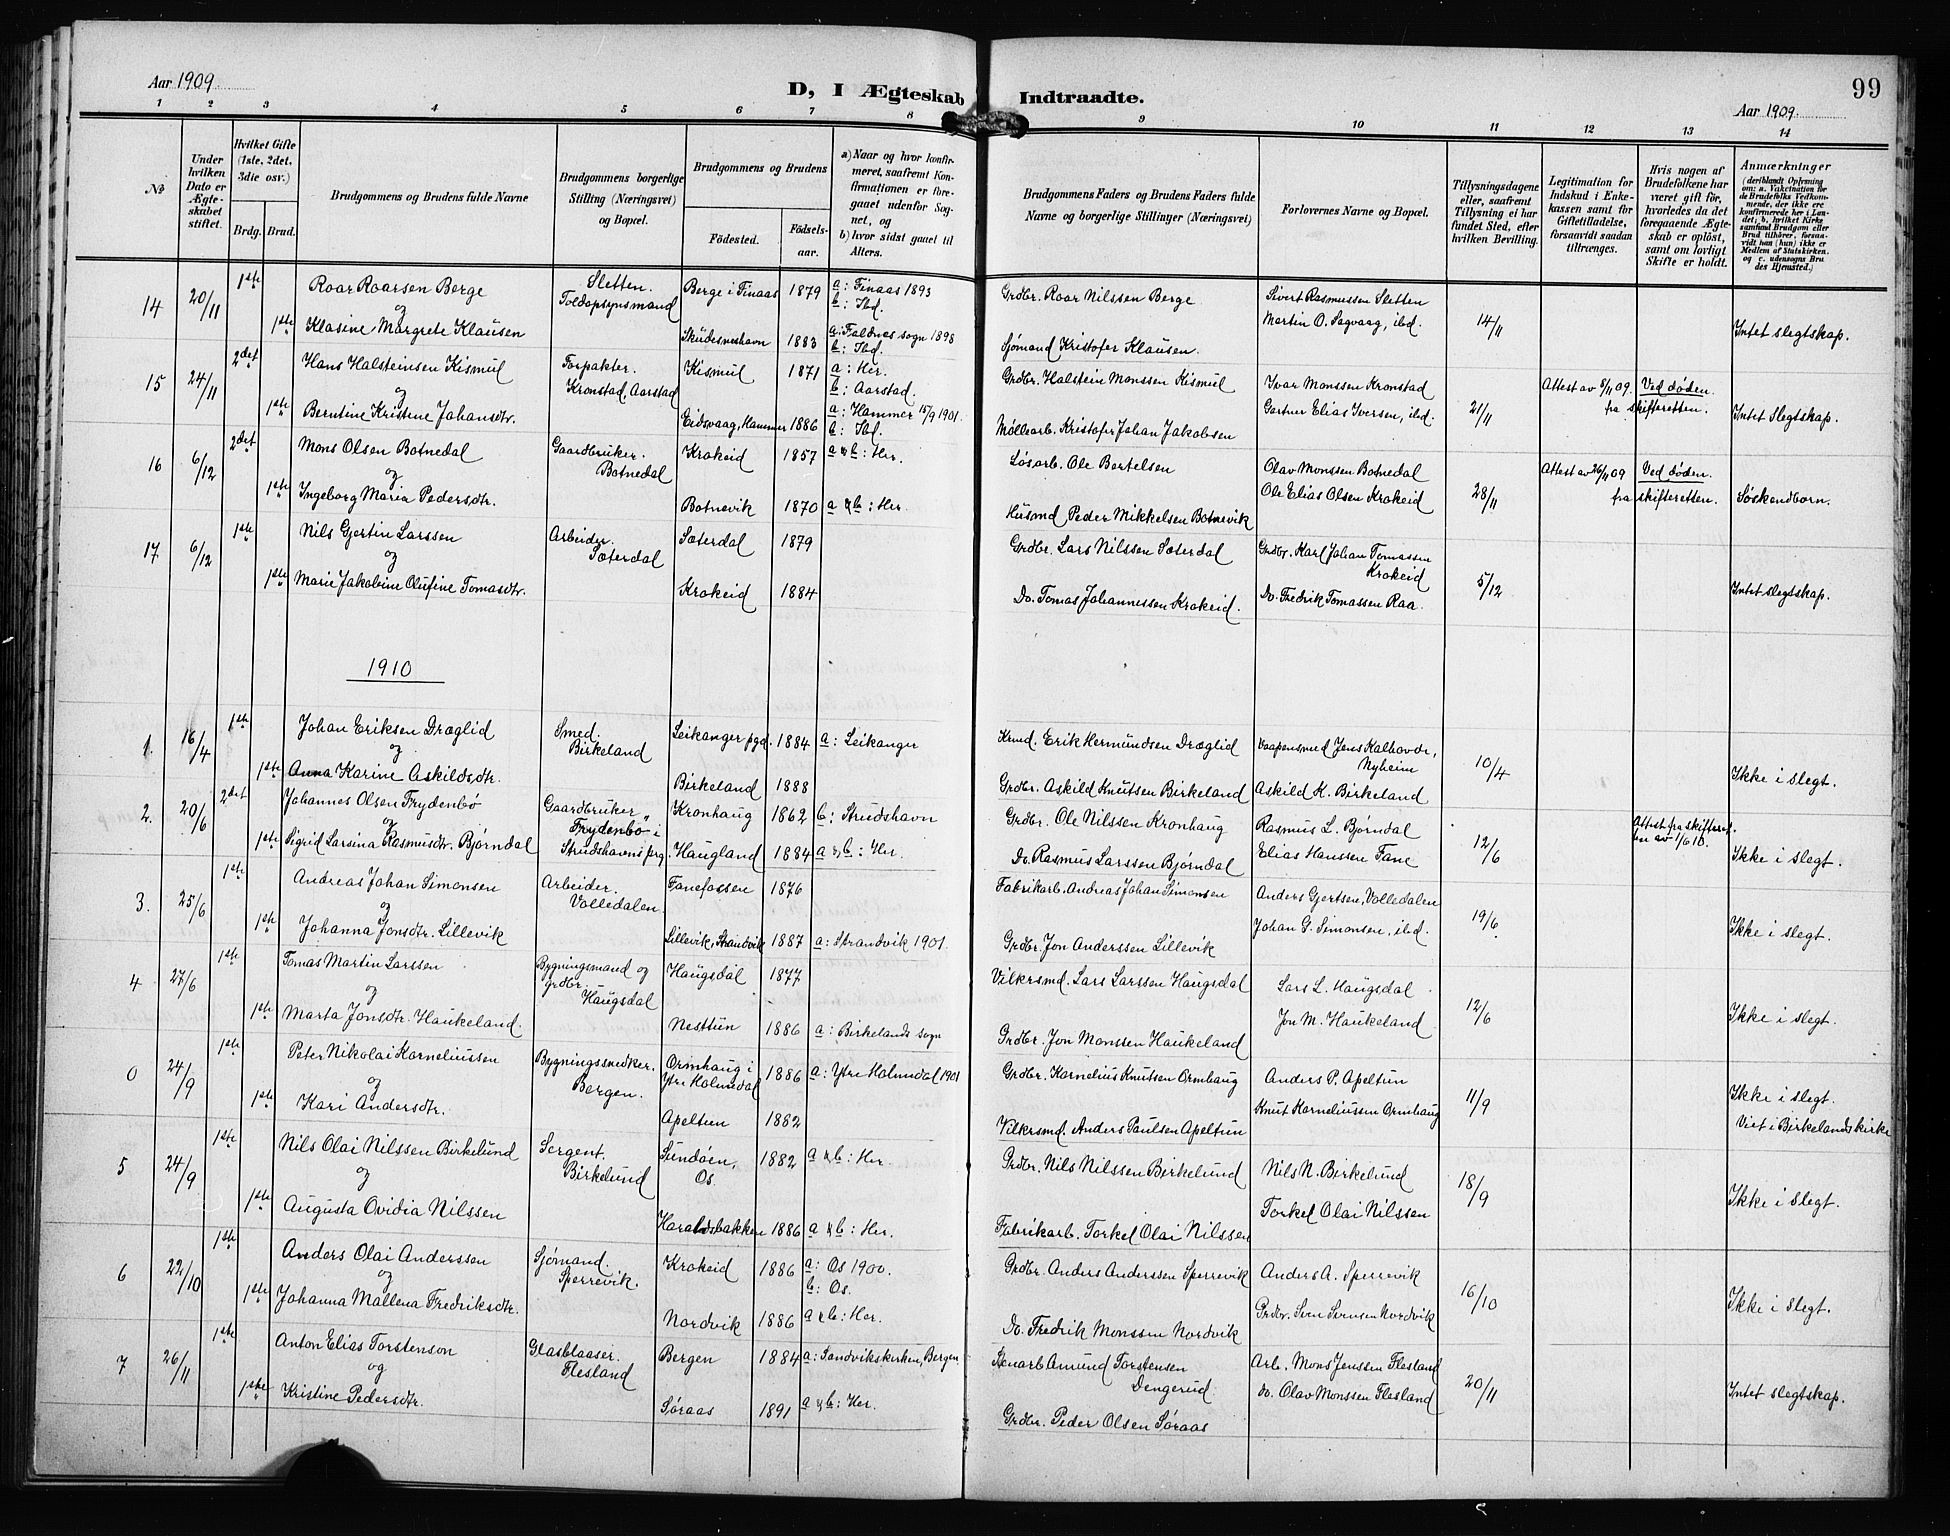 Aar 1909.
D, I Ægteskab Indtraadte.
99
Aar 1909.
1 2 3 4 5 6 7 8 9 10 11 12 13 14
No
Under hvilken Dato er Ægteskabet stiftet.
Hvilket Gifte (1ste, 2det, 3die osv.)
Brdg. Brud.
Brudgommens og Brudens fulde Navne
Brudgommens borgerlige Stilling (Næringsvei) og Bopæl.
Brudgommens og Brudens
Fødested. Fødselsaar.
a) Naar og hvor konfirmeret, saafremt Konfirmationen er foregaaet udenfor Sognet, og
b) hvor sidst gaaet til Alters.
Brudgommens Faders og Brudens Faders fulde Navne og borgerlige Stillinger (Næringsvei)
Forlovernes Navne og Bopæl.
Tillysningsdagene eller, saafremt Tillysning ei har fundet Sted, efter hvilken Bevilling.
Legitimation for Indskud i Enkekassen samt for Giftetilladelse, forsaavidt saadan tiltrænges.
Hvis nogen af Brudefolkene har været gift før, hvorledes da det foregaaende Ægteskab er opløst, samt om lovligt Skifte er holdt.
Anmærkninger
(deriblandt Oplysning om: a. Vakcination for de Brudefolks Vedkommende, der ikke ere konfirmerede her i Landet; b. hvilket Kirkesamfund Brudgom eller Brud tilhører, forsaavidt han (hun) ikke er Medlem af Statskirken. og c. udensogns Brudes Hjemsted.)
14 20/11 1ste Roar Roarsen Berge Sletten. Toldopsynsmand Berge i Finaas 1879 a: Finaas 1893 b: Ibd. Grdbr. Roar Nilssen Berge Sivert Rasmussen Sletten
og
1ste Klasine Margrete Klausen Skudesneshavn 1883 a: Faldnes sogn 1898 b: Ibd. Sjømand Kristofer Klausen. Martin O. Sagvaag, ibd. 14/11 Intet slegtskap.
15 24/11 2det Hans Halsteinsen Kismul Forpakter. Kronstad, Aarstad Kismul 1871 a: Her. b: Aarstad. Grdbr. Halstein Monssen Kismul Ivar Monssen Kronstad Attest av 8/11 09. fra skifteretten. Ved døden.
og
1ste Berntine Kristine Johansdtr. Eidsvaag, Hammer 1886 a: Hammer 15/9 1901. b: Ibd. Møllearb. Kristofer Johan Jakobsen Gartner Elias Iversen, ibd. 21/11 Intet Slegtskap.
16 6/12 2det Mons Olsen Botnedal Gaardbruker. Botnedal Krokeid 1857 a & b: Her. Løsarb. Ole Bertelsen Olav Monssen Botnedal Attest av 26/11 09 fra skifteretten. Ved døden.
og
1ste Ingeborg Maria Pedersdtr. Botnevik 1870 a & b: Her. Husmd Peder Mikkelsen Botnevik Ole Elias Olsen Krokeid 28/11 Søskendborn.
17. 6/12 1ste Nils Gjertin Larssen Arbeider. Sæterdal Sæterdal 1879 Grdbr. Lars Nilssen Sæterdal Grdbr. Karl Johan Tomassen Krokeid
og
1ste Marie Jakobine Olufine Tomasdtr. Krokeid 1884 Do. Tomas Johannessen Krokeid. Do. Fredrik Tomassen Raa. 5/12 Intet slegtskap.
1910
1. 16/4 1ste Johan Eriksen Dræglid Smed. Birkeland Leikanger pgd. 1884 a: Leikanger Krmd. Erik Hermundsen Dræglid Vaapensmed Jens Kalhovde, Nyheim
og
1ste Anna Karine Askildsdtr. Birkeland 1888 Grdbr. Askild Knutsen Birkeland Askild K. Birkeland 10/4 Ikke i slegt.
2. 20/6 2det Johannes Olsen Frydenbø Gaardbruker, Frydenbø i Strudshavens prg. Kronhaug 1862 b: Strudshavn Grdbr. Ole Nilssen Kronhaug Rasmus L. Bjørndal Attest fra skifteretten av 1/6 10.
og
1ste Sigrid Larsina Rasmusdtr. Bjørndal Haugland 1884 a & b: Her. Do. Rasmus Larssen Bjørndal Elias Hanssen Fane 12/6 Ikke i slegt.
3. 25/6 1ste Andreas Johan Simonsen Arbeider. Volledalen. Fanefossen 1876 Fabrikarb. Andreas Johan Simonsen Anders Gjertsen, Volledalen
og
1ste Johanna Jonsdtr. Lillevik Lillevik, Strandvik 1887 a: Strandvik 1901. Grdbr. Jon Anderssen Lillevik Johan G. Simonsen, ibd. 19/6. Ikke i slegt.
4 27/6 1ste Tomas Martin Larssen Bygningsmand og grdbr. Haugsdal Haugsdal 1877 Vilkrsmd. Lars Larssen Haugsdal Lars L. Haugsdal
og
1ste Marta Jonsdtr. Haukeland. Nesttun 1886 a: Birkelands sogn Grdbr. Jon Monssen Haukeland Jon M. Haukeland 12/6 Ikke i slegt.
0 24/9 1ste Peter Nikolai Korneliussen Bygningssnedker. Bergen. Ormhaug i Ytre Holmedal 1886 a: Ytre Holmdal 1901 Grdbr. Kornelius Knutsen Ormhaug Anders P. Apeltun
og
1ste Kari Andersdtr. Apeltun 1882 Vilkrsmd. Anders Paulsen Apeltun Knut Korneliussen Ormhaug 11/9 Ikke i slegt. Viet i Birkelands kirke
5 24/9 1ste Nils Olai Nilssen Birkelund Sergent. Birkelund Sundøen, Os. 1882 a & b: Her. Grdbr. Nils Nilssen Birkelund Nils N. Birkelund
og
1ste Augusta Ovidia Nilssen Haraldsbakken 1886 a & b: Her. Fabrikarb. Torkel Olai Nilssen Torkel Olai Nilssen 18/9 Ikke i slegt.
6 22/10 1ste Anders Olai Anderssen Sjømand. Sperrevik. Krokeid 1886 a: Os 1900. b: Os. Grdbr. Anders Anderssen Sperrevik Anders A. Sperrevik
og
1ste Johanna Mallena Fredriksdtr. Nordvik 1886 a & b: Her. Do. Fredrik Monssen Nordvik Grdbr. Sven Svensen Nordvik 16/10 Ikke i slegt.
7 26/11 1ste Anton Elias Torstenson Glasblaaser. Flesland Bergen 1884 a: Sandvikskirken, Bergen. Stenarb Amund Torstensen Dengerud. Arb. Mons Jenssen Flesland
og
1ste Kristine Pedersdtr. Søraas 1891 a & b: Her. Grdbr. Peder Olsen Søraas do. Olav Monssen Flesland 20/11 Intet slegtskap.